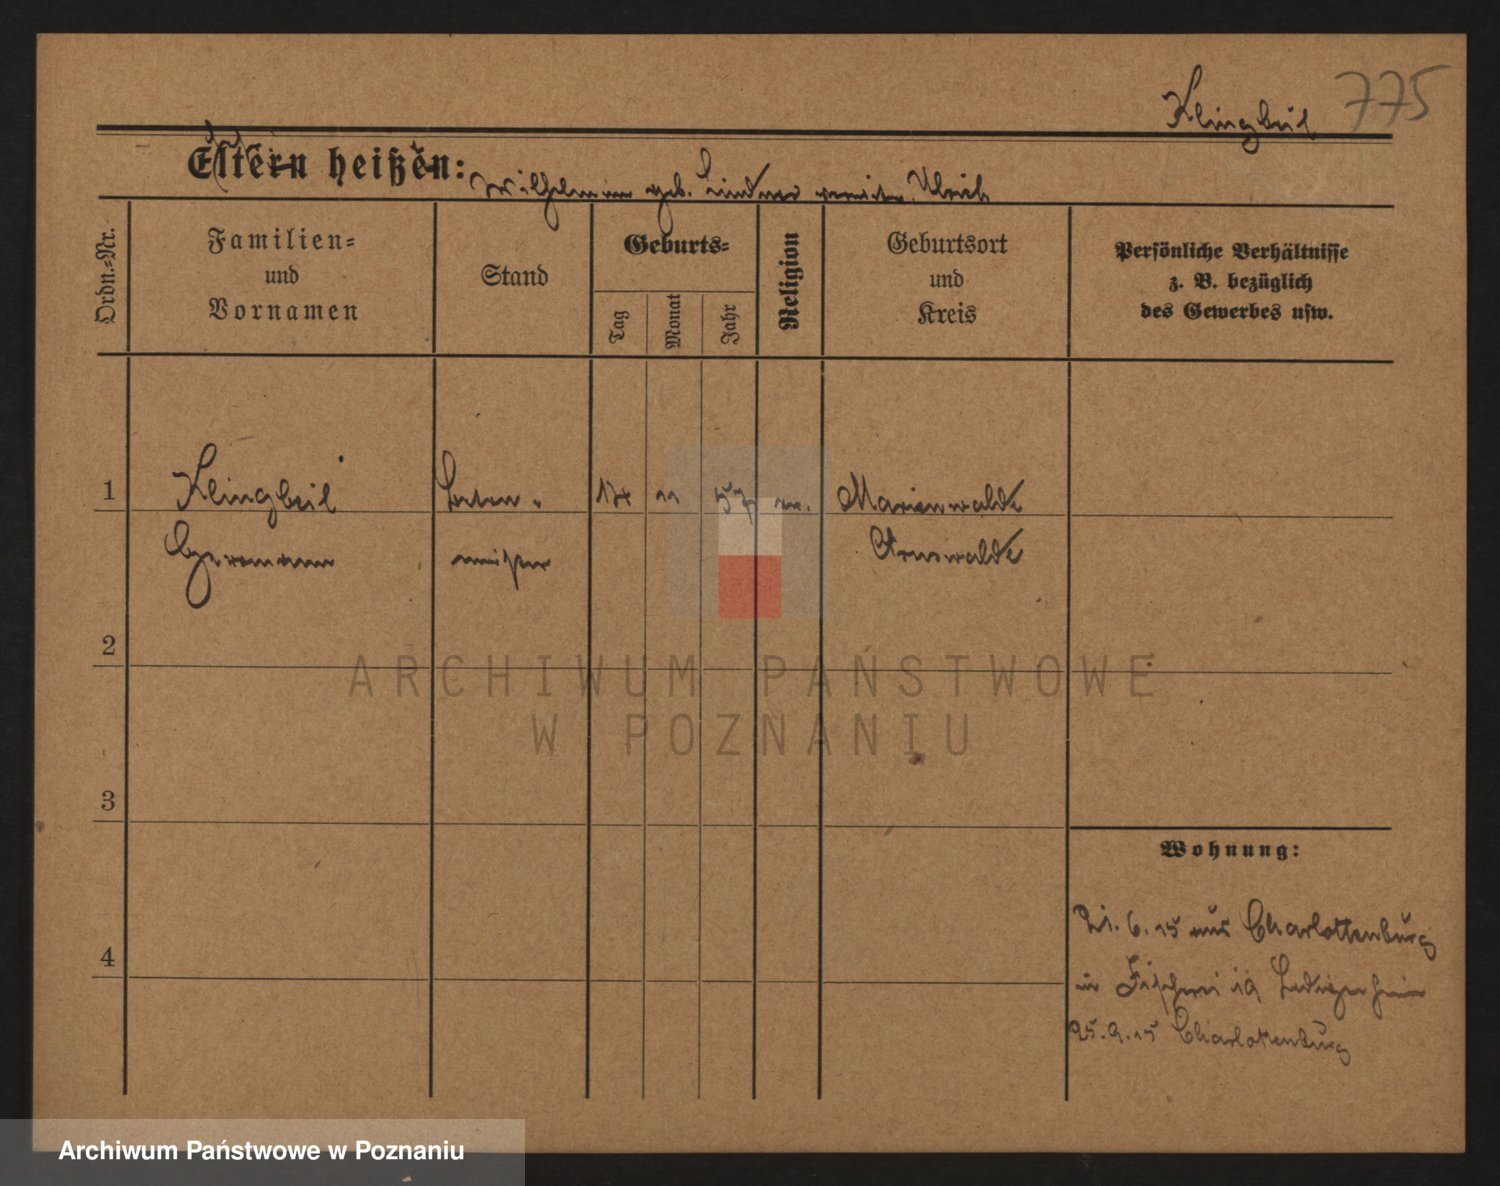 Klingbeil 775
Eltern heißen: Wilhelmine geb. Lindner Ulrich
Ordn.=Nr.
Familien=
und
Vornamen
Stand
Geburts=
Tag
Monat
Jahr
Religion
Geburtsort
und
Kreis
Persönliche Verhältnisse
z. B. bezüglich
des Gewerbes usw.
1
Klingbeil
57
ev.
Marienwalde
Hermann
meister
Arnswalde
2
3
4
Wohnung:
21. 6. 15 aus Charlottenburg
in Fischerei 19
25. 9. 15 Charlottenburg
ARCHIWUM PAŃSTWOWE
W POZNANIU
Archiwum Państwowe w Poznaniu